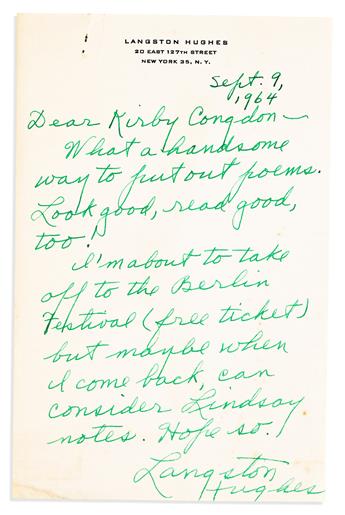 LANGSTON HUGHES
20 EAST 127TH STREET
NEW YORK 35, N. Y.
Sept. 9,
1964
Dear Kirby Congdon—
What a handsome
way to put out poems.
Look good, read good,
too!
I'm about to take
off to the Berlin
Festival (free ticket)
but maybe when
I come back, can
consider Lindsay
notes. Hope so!
Langston
Hughes